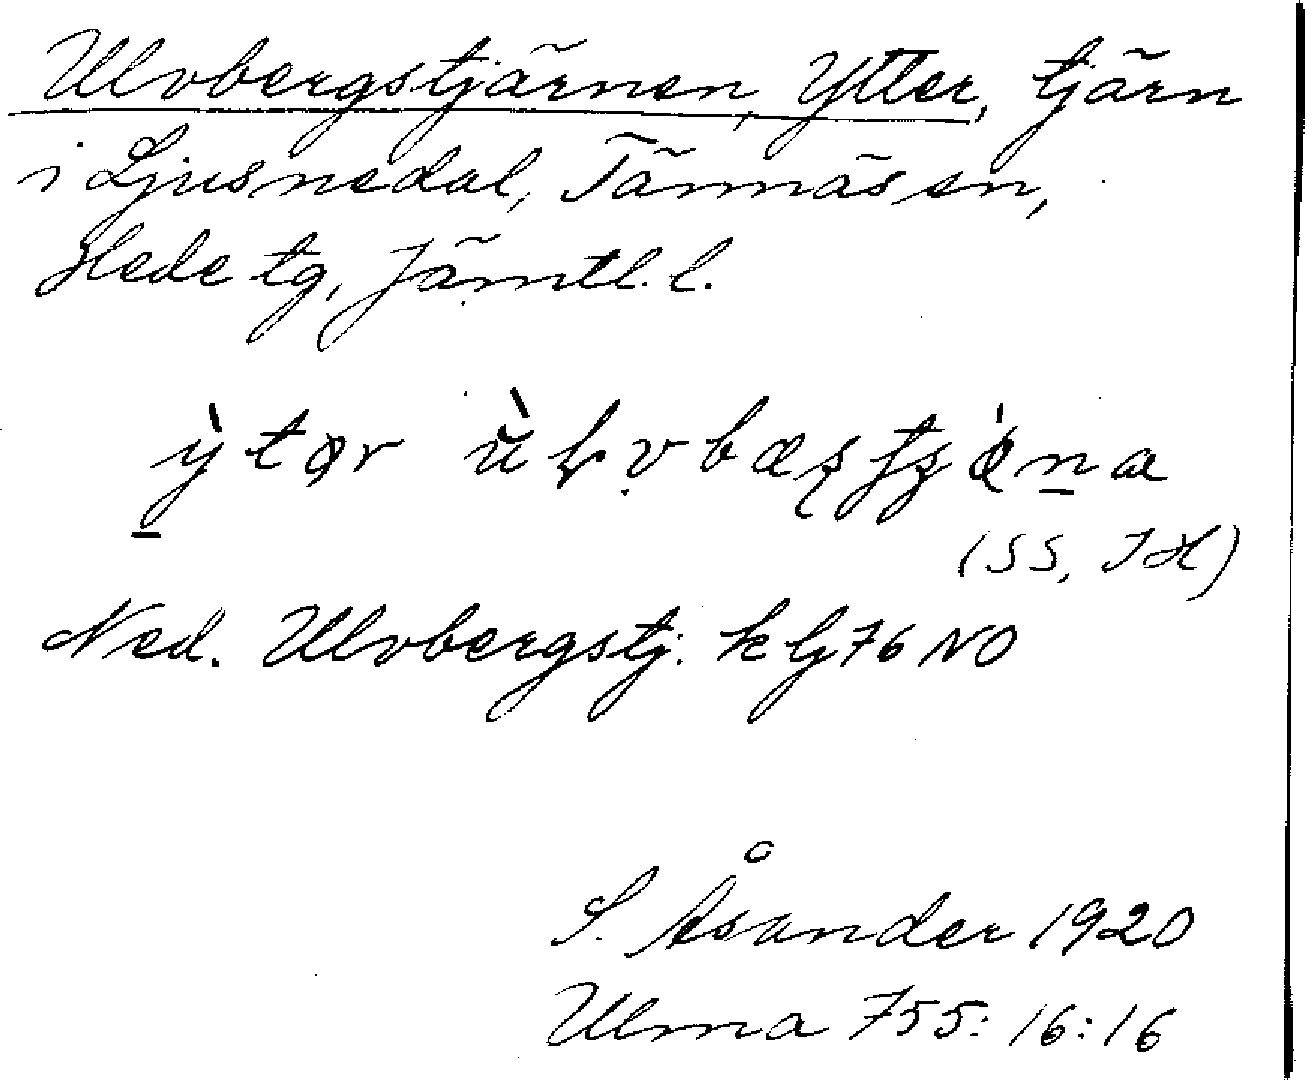 Ulvbergstjärnen, Ytter, tjärn
i Ljusnedal, Tännäs sn,
Hede tg, Jämtl. l.
(SS, JH)
Ned. Ulvbergstj. k lj 76 NO
S. Åsander 1920
Ulma 755: 16:16